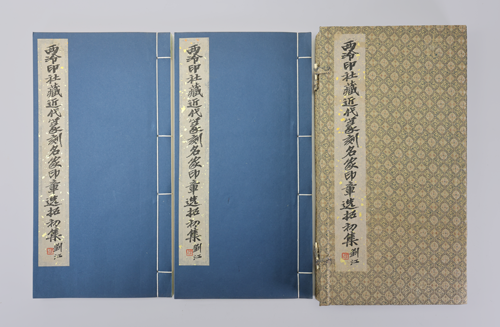 西泠印社藏近代篆刻名家印章選拓初集
劉江
西泠印社藏近代篆刻名家印章選拓初集
劉江
西泠印社藏近代篆刻名家印章選拓初集
劉江